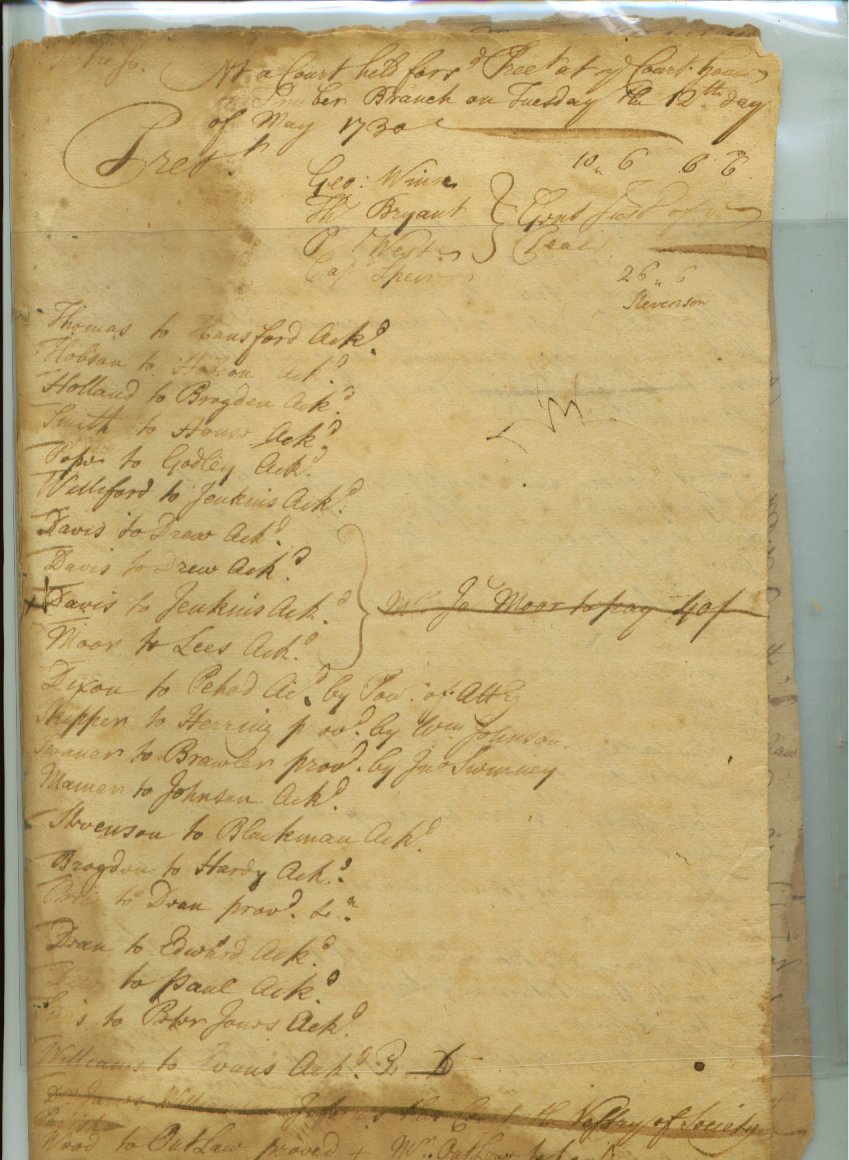 At a Court held for sd Prect at ye Court house
Timber Branch on Tuesday the 12th day
of May 1730
Presnt
10 " 6 6 6
Geo: Winn
Tho Bryant } Gent Just of
West
Cap Speir
26 " 6
Stevenson
Thomas to Hansford Ackd
Hobson to Hobson Ackd
Holland to Brogden Ackd
Smith to Ackd
Pope to Godley Ackd
Williford to Jenkins Ackd
Davis to Drew Ackd
Davis to Drew Ackd
Davis to Jenkins Ackd } Mr Jo Moor to pay 40/
Moor to Lees Ackd
Dixon to Pehod Acd by Pow: of Att
Skipper to Herring provd by Wm Johnson
to Brawler provd by Jno Swinney
Mainer to Johnson Ackd
Stevenson to Blackman Ackd
Brogdon to Hardy Ackd
to Dean provd
Dean to Edwárd Ackd
to Paul Ackd
to Peter Jones Ackd
Williams to Evans Ackd
this Court the Vestry of Society
Parish
Wood to OutLaw proved + Mr OutLaw to